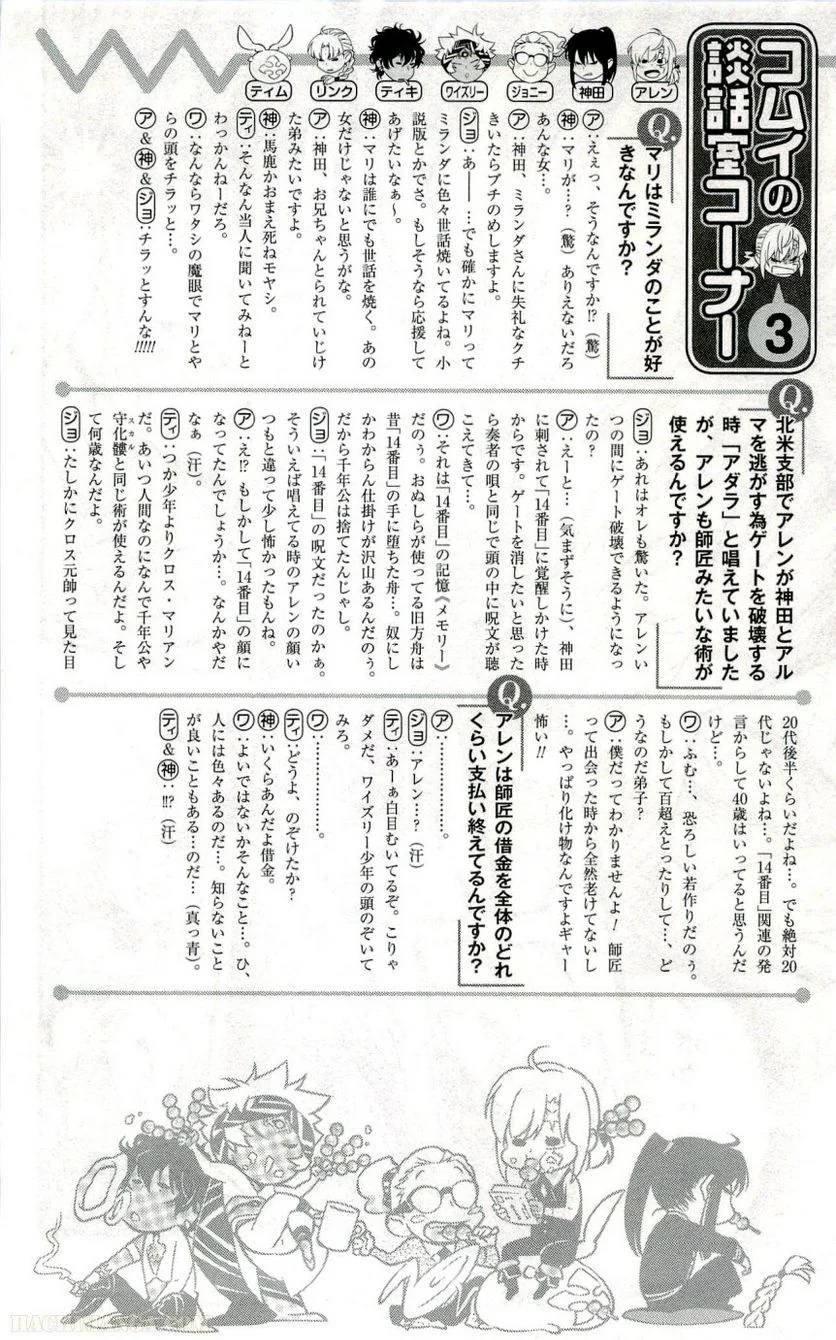 コムイの
談話室コーナー
3
アレン
神田
ジョニー
ワイズリー
ティキ
リンク
ティム
Q.
マリはミランダのことが好
きなんですか？
ア：えぇっ、そうなんですか!?（驚）
神：マリが…？（驚）ありえないだろ
あんな女…。
ア：神田、ミランダさんに失礼なクチ
きいたらブチのめしますよ。
ジョ：あ――…でも確かにマリって
ミランダに色々世話焼いてるよね。小
説版とかでさ。もしそうなら応援して
あげたいなぁ〜。
神：マリは誰にでも世話を焼く。あの
女だけじゃないと思うがな。
ア：神田、お兄ちゃんとられていじけ
た弟みたいですよ。
神：馬鹿かおまえ死ねモヤシ。
ティ：そんなん当人に聞いてみねーと
わっかんねーだろ。
ワ：なんならワタシの魔眼でマリとや
らの頭をチラッと…。
ア&神&ジョ：チラッとすんな!!!!!
Q.
北米支部でアレンが神田とアル
マを逃がす為ゲートを破壊する
時「アダラ」と唱えていました
が、アレンも師匠みたいな術が
使えるんですか？
ジョ：あれはオレも驚いた。アレンい
つの間にゲート破壊できるようになっ
たの？
ア：えーと…（気まずそうに）、神田
に刺されて「14番目」に覚醒しかけた時
からです。ゲートを消したいと思った
ら奏者の唄と同じで頭の中に呪文が聴
こえてきて…。
ワ：それは「14番目」の記憶《メモリー》
だのぅ。おぬしらが使ってる旧方舟は
昔「14番目」の手に堕ちた舟…。奴にし
かわからん仕掛けが沢山あるんだのぅ。
だから千年公は捨てたんじゃし。
ジョ：「14番目」の呪文だったのかぁ。
そういえば唱えてる時のアレンの顔い
つもと違って少し怖かったもんね。
ア：え!?もしかして「14番目」の顔に
なってたんでしょうか…。なんかやだ
なぁ（汗）。
ティ：つか少年よりクロス・マリアン
だ。あいつ人間なのになんで千年公や
守化髏と同じ術が使えるんだよ。そし
スカル
て何歳なんだよ。
ジョ：たしかにクロス元帥って見た目
20代後半くらいだよね…。でも絶対20
代じゃないよね…。「14番目」関連の発
言からして40歳はいってると思うんだ
けど…。
ワ：ふむ…、恐ろしい若作りだのぅ。
もしかして百超えとったりして…、ど
うなのだ弟子？
ア：僕だってわかりませんよ！師匠
って出会った時から全然老けてないし
…。やっぱり化け物なんですよギャー
怖い!!
Q.
アレンは師匠の借金を全体のどれ
くらい支払い終えてるんですか？
ア：………………。
ジョ：アレン…？（汗）
ティ：あーぁ白目むいてるぞ。こりゃ
ダメだ、ワイズリー少年の頭のぞいて
みろ。
ワ：………………。
ティ：どうよ、のぞけたか？
神：いくらあんだよ借金。
ワ：よいではないかそんなこと…。ひ、
人には色々あるのだ…。知らないこと
が良いこともある…のだ…（真っ青）。
ティ&神：!!?（汗）